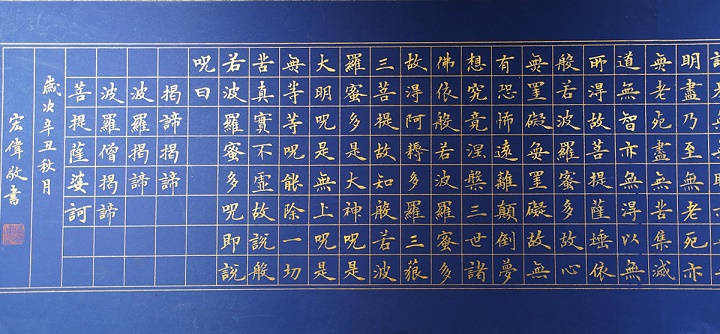 明盡乃至無老死亦
無老死盡無苦集滅
道無智亦無得以無
所得故菩提薩埵依
般若波羅蜜多故心
無罣礙無罣礙故無
有恐怖遠離顛倒夢
想究竟涅槃三世諸
佛依般若波羅蜜多
故得阿耨多羅三藐
三菩提故知般若波
羅蜜多是大神呪是
大明呪是無上呪是
無等等呪能除一切
苦真實不虛故說般
若波羅蜜多呪即說
呪曰
揭諦揭諦
波羅揭諦
波羅僧揭諦
菩提薩婆訶
歲次辛丑秋月
宏偉敬書